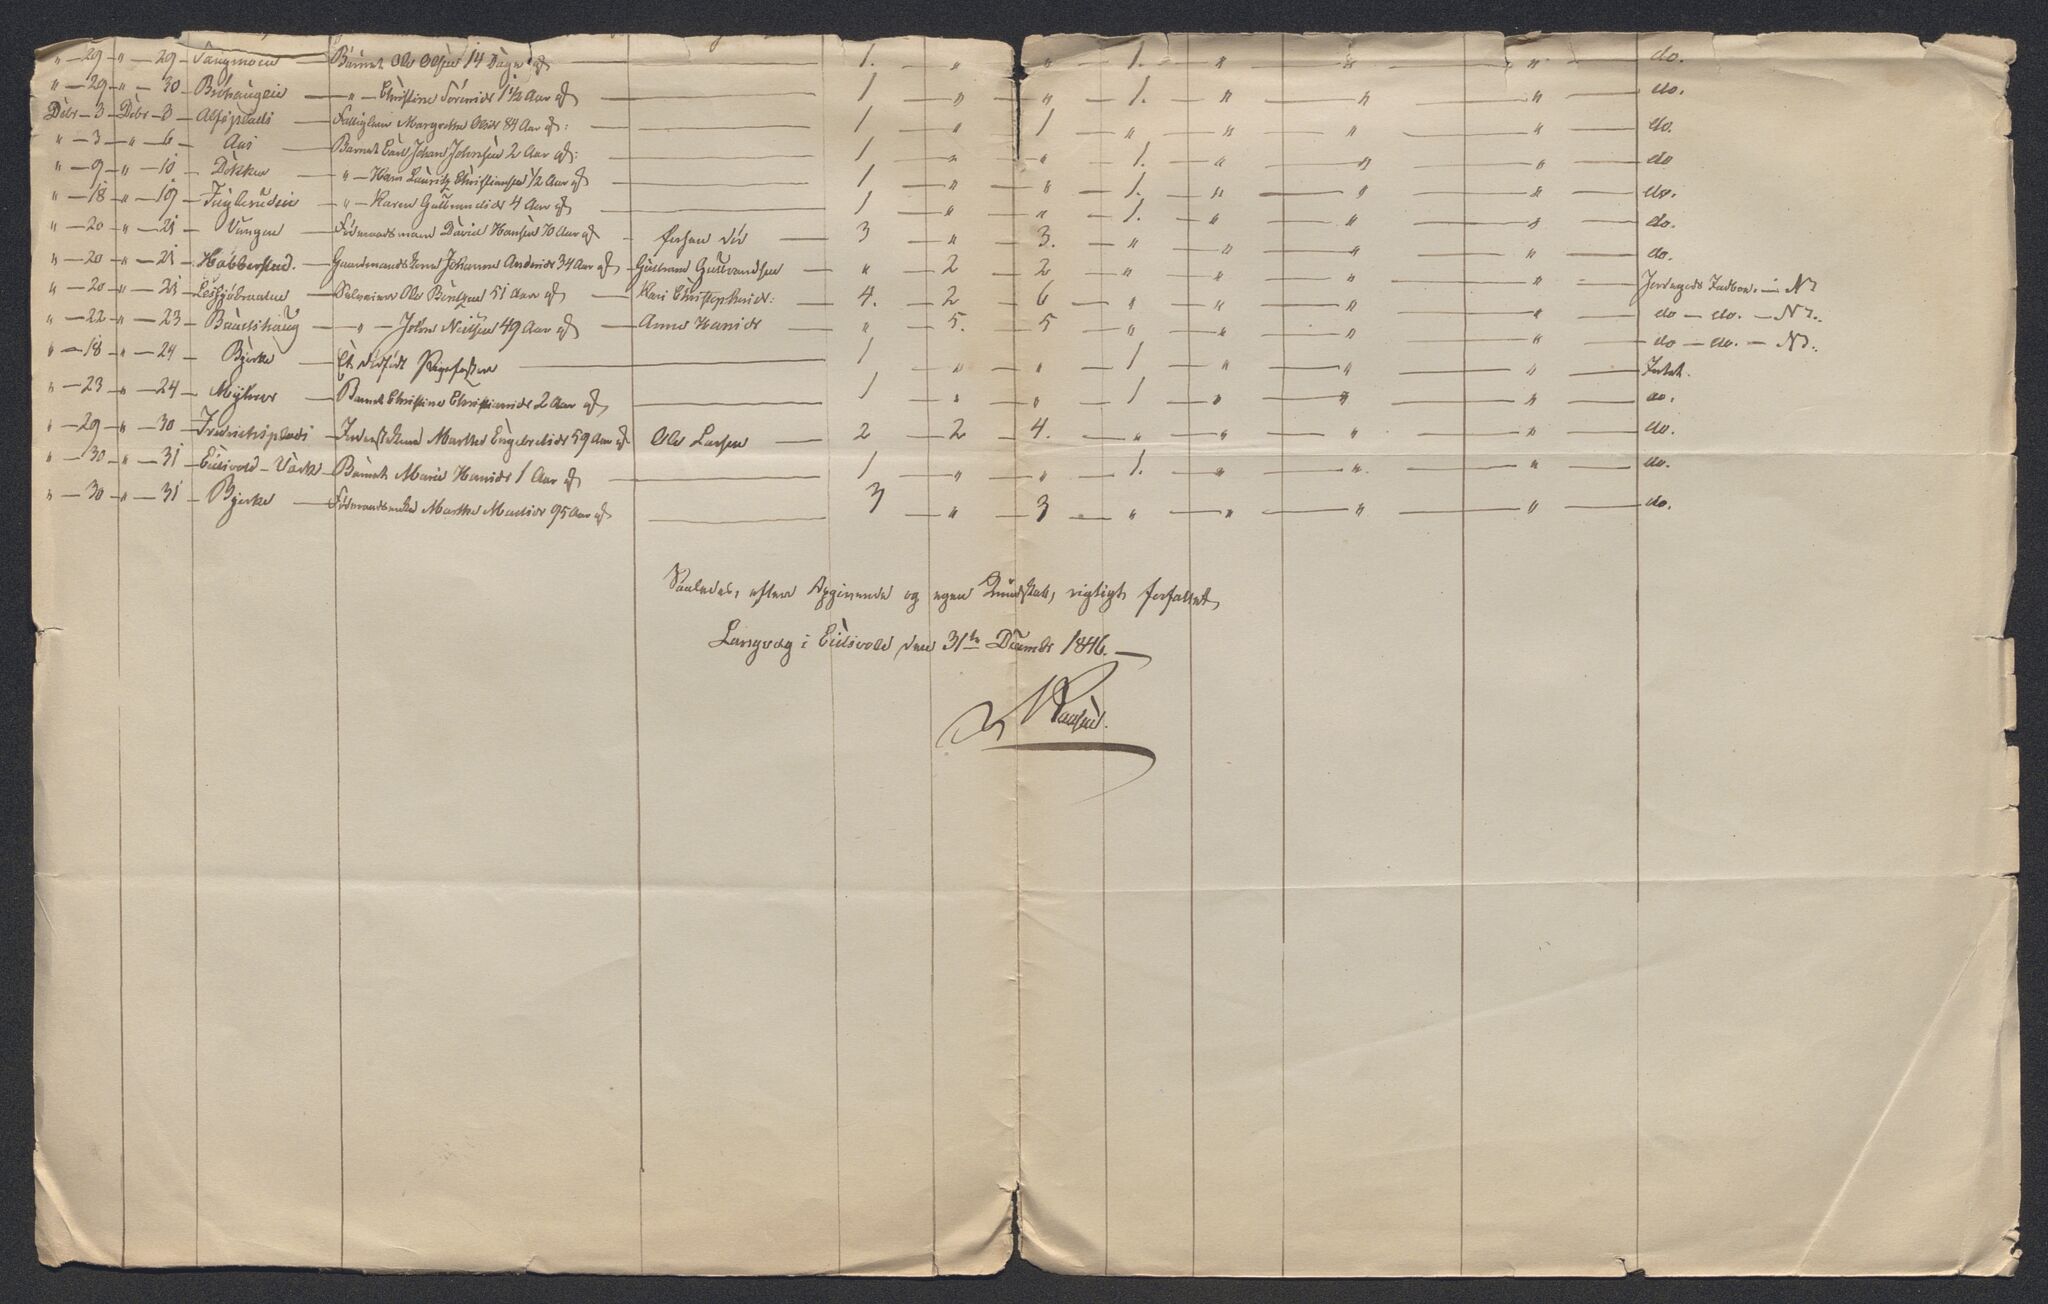 " — 29 — " — 29 — Barnet Ole Olsen 14 Dage gl — 1. — " — " — 1. — " — " — " — do.
" — 29 — " — 30 — Brohaugen — " — Christine 1½ Aar gl — 1 — " — " — 1. — " — " — " — do.
Debr — 3 — Debr — 3 — Margrethe Olsdr 84 Aar gl: — 1 — " — 1 — " — " — " — " — do.
" — 3 — " — 6 — Aas — Barnet Carl Johan Johnsen 2 Aar gl: — 1 — " — " — 1. — " — " — " — do
" — 9 — " — 10 — Dokken — " — Hans Lauritz Christiansen ½ Aar gl — 1 — " — " — 1. — " — " — " — do.
" — 18 — " — 19 — — " — Karen Gulbrandsdr 4 Aar gl — 1 — " — " — 1. — " — " — " — do.
" — 20 — " — 21 — Vangen — Fødraadsmand David Hansen 70 Aar gl — 3 — " — 3. — " — " — " — " — do.
" — 20 — " — 21 — Habberstad. — Gaardmandskone Johanne Andersdr 34 Aar gl — Gulbrand Gulbrandsen — " — 2 — 2 — " — " — " — " —
" — 20 — " — 21 — — Selveier Ole Bentzen 51 Aar gl — Kari Christophersdr: — 4. — 2 — 6 — " — " — " — " — do — do. —
" — 22 — " — 23 — Baadshaug — " — John Nielsen 49 Aar gl — Anne Hansdr — " — 5. — 5 — " — " — " — " — do — do. —
" — 18 — " — 24 — Bjerke — Et dødfødt Pigebarn — 1 — " — " — 1 — " — " — " — Intet.
" — 23 — " — 24 — Myhrer — Barnet Christine Christiansdr 2 Aar gl — 1 — " — " — 1 — " — " — " — do.
" — 29 — " — 30 — Fredrichsplads — Marthe Engebretsdr 59 Aar gl — Ole Larsen — 2 — 2 — 4. — " — " — " — " — do.
" — 30 — " — 31 — Eidsvold-Værk — Barnet Marie Hansdr 1 Aar gl — 1 — " — " — 1. — " — " — " — do.
" — 30 — " — 31 — Bjerke — Fødraadsenke Marthe Madsdr 95 Aar gl — 3 — " — 3 — " — " — " — " — do.
Saaledes, efter Opgivende og egen Kundskab, rigtigt forfattet,
Langvag i Eidsvold den 31te December 1846. —